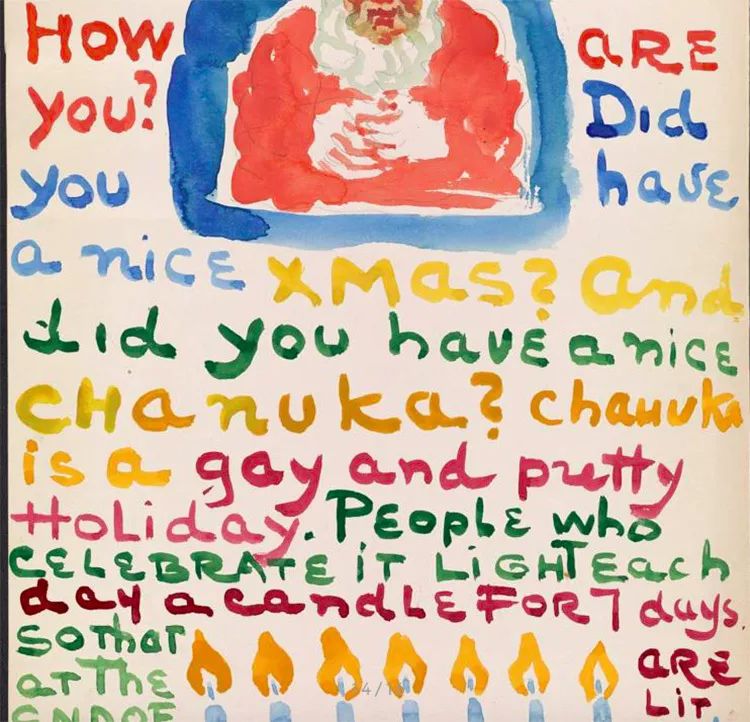 HOW ARE
you? Did
you have
a nice xmas? and
did you have a nice
chanuka? chanuka
is a gay and pretty
Holiday. PEOPLE who
CELEBRATE iT LiGHT Each
day a caNDLE FOR 7 days.
so that
ARE
aT The
LiT
END OF